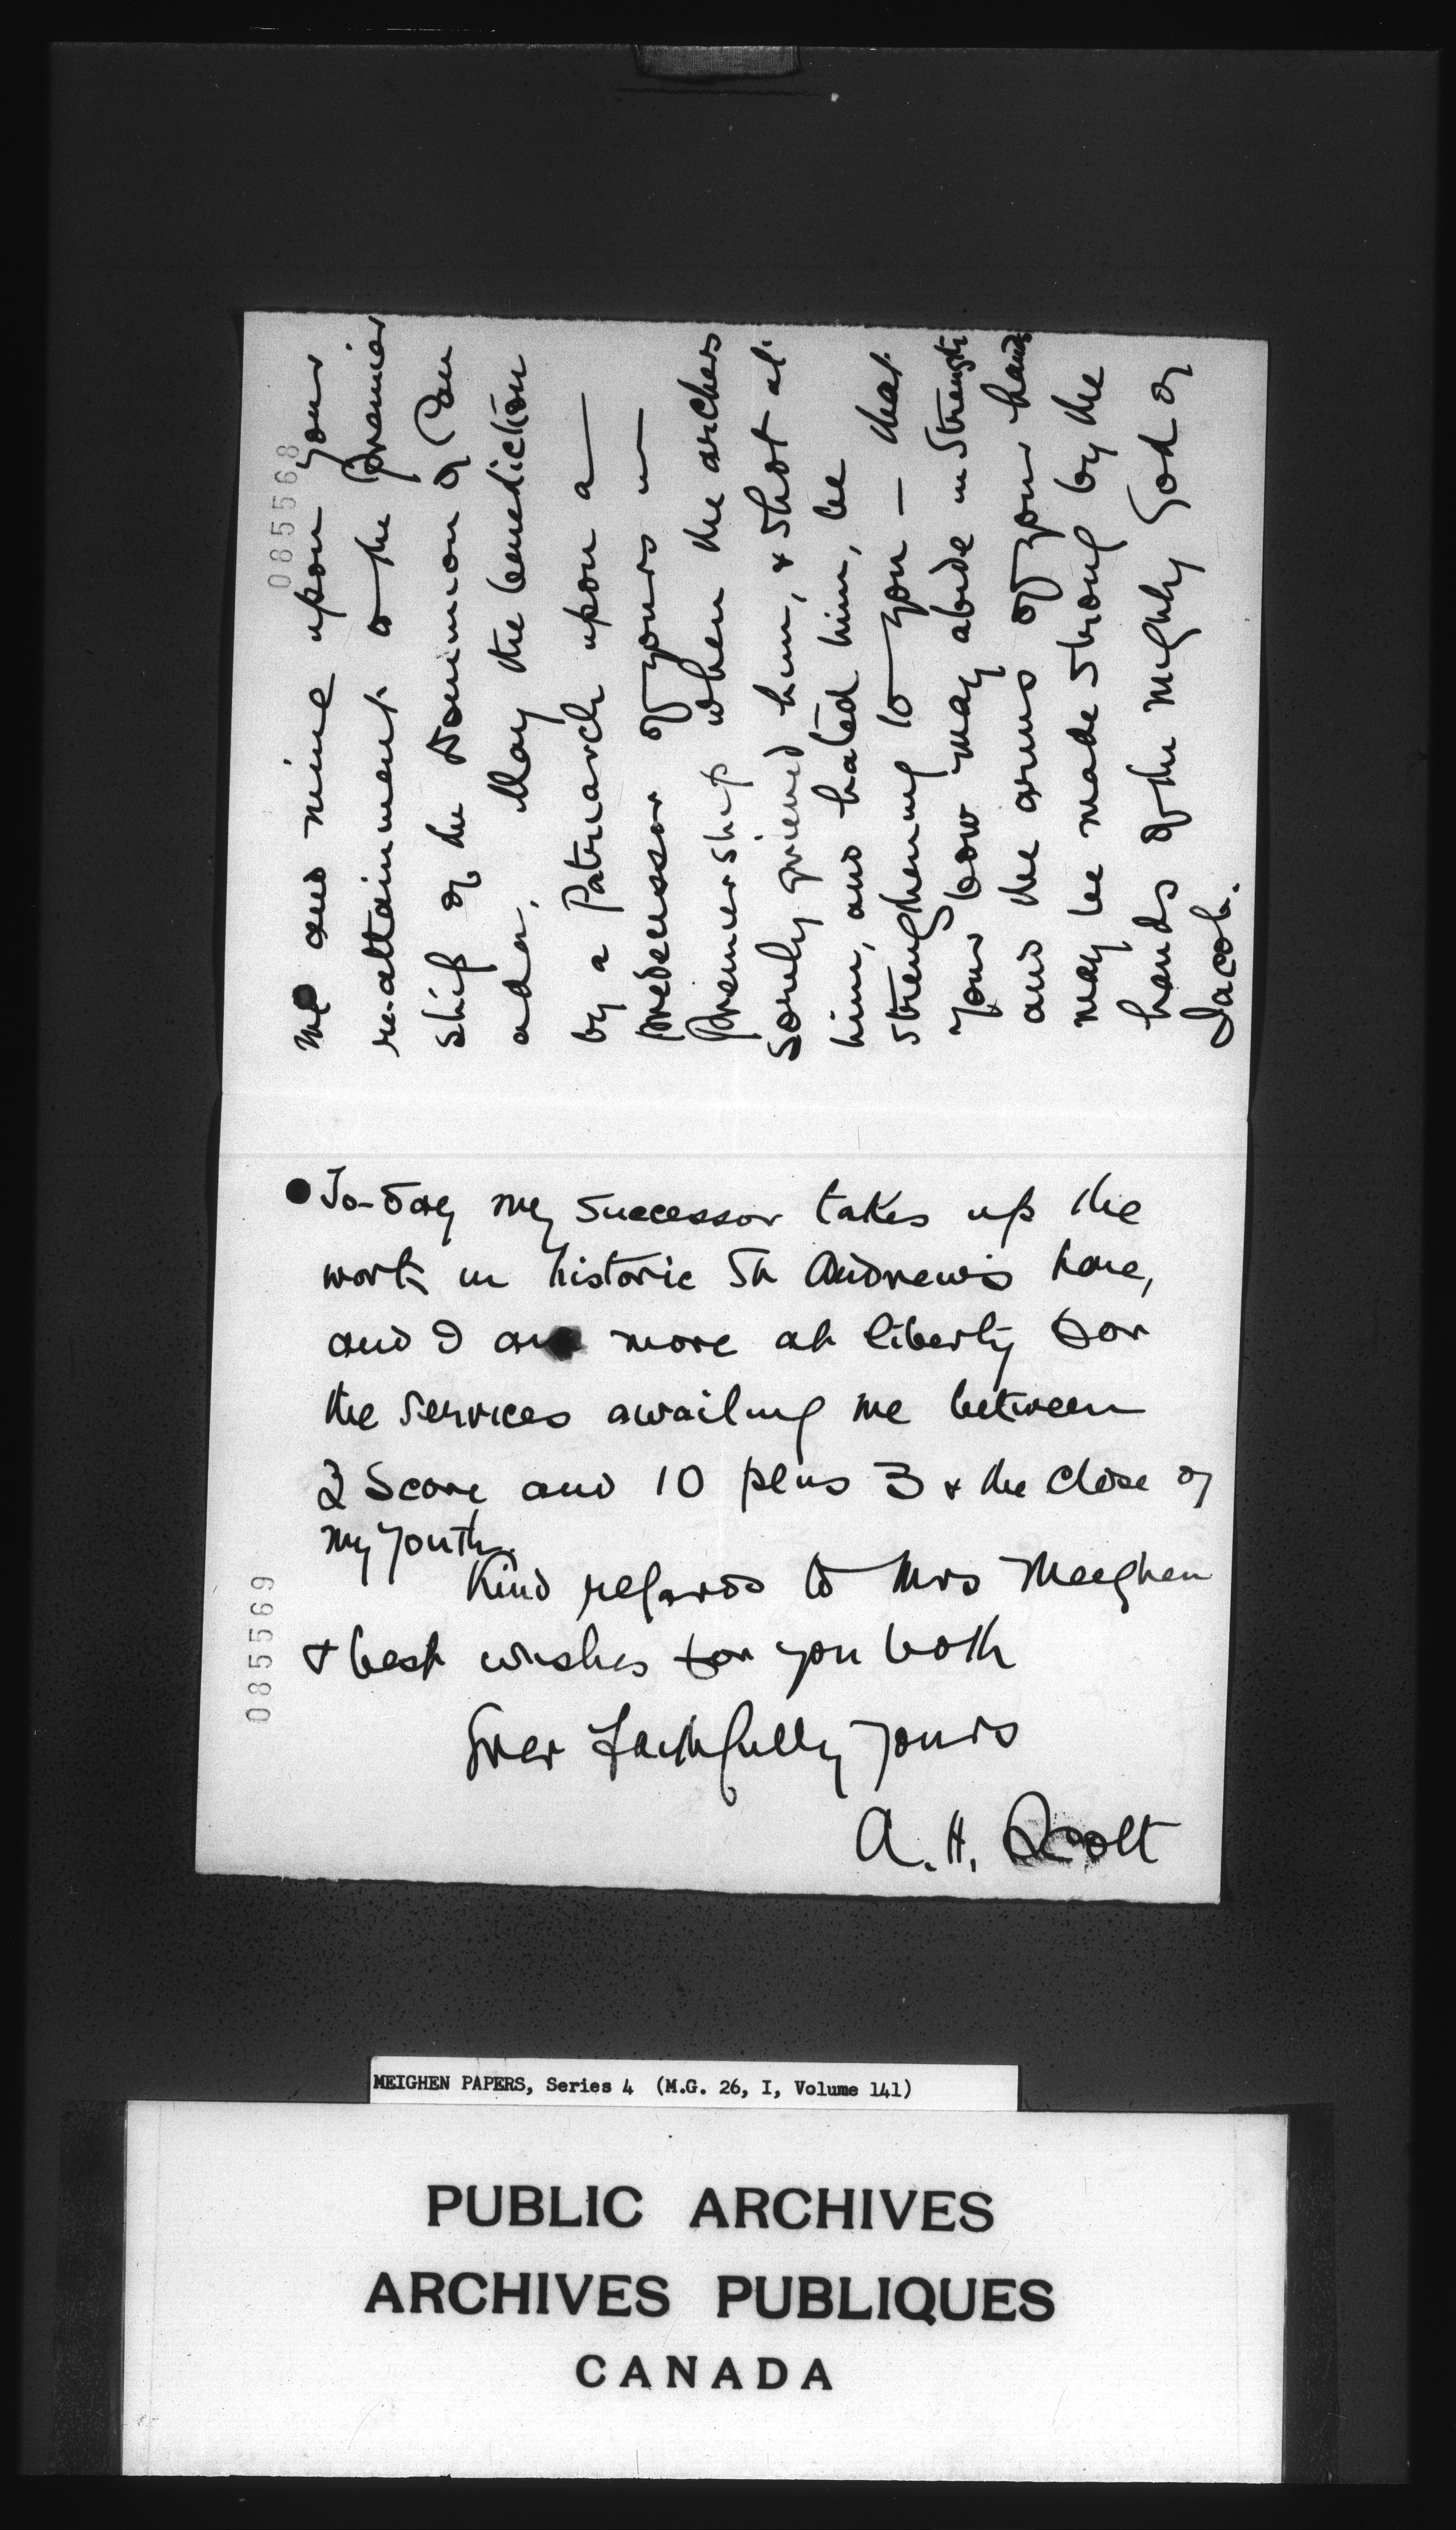 085568
me and mine upon your
re-attainment to the Premier
ship of the Dominion of Can
ada. May the benediction
by a Patriarch upon a
predecessor of yours in
Premiership when the archers
sorely grieved him, & shot at
him, and hated him, be
strengthening to you — that
your bow may abide in strength
and the arms of your hands
may be made strong by the
hands of the mighty God of
Jacob.
To-day my successor takes up the
work in historic St Andrew's here,
and I am more at liberty for
the services awaiting me between
3 Score and 10 plus 3 & the close of
my youth.
Kind regards to Mrs Meighen
& best wishes for you both
Ever faithfully yours
A. H. Scott
085569
MEIGHEN PAPERS, Series 4 (M.G. 26, I, Volume 141)
PUBLIC ARCHIVES
ARCHIVES PUBLIQUES
CANADA